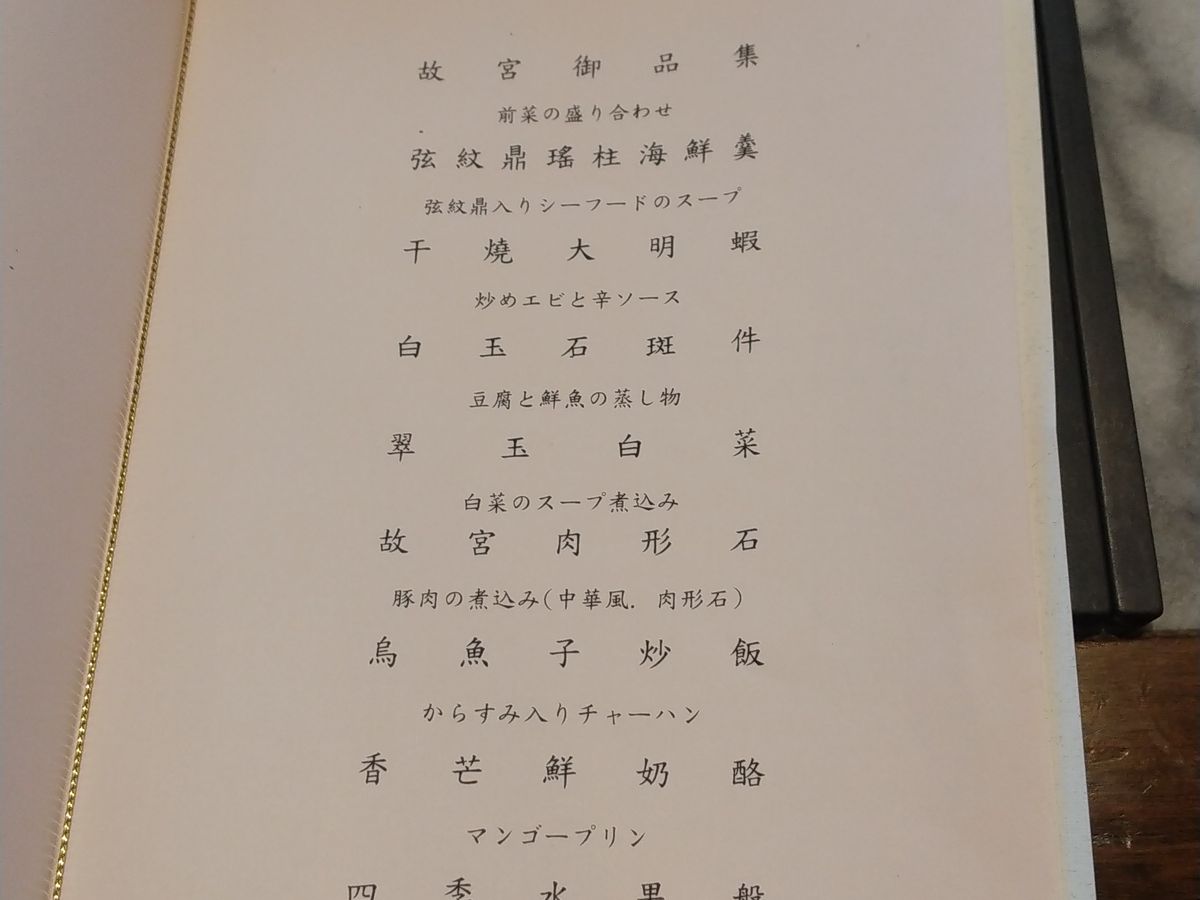 故宮御品集
前菜の盛り合わせ
弦紋鼎瑤柱海鮮羹
弦紋鼎入りシーフードのスープ
干燒大明蝦
炒めエビと辛ソース
白玉石斑件
豆腐と鮮魚の蒸し物
翠玉白菜
白菜のスープ煮込み
故宮肉形石
豚肉の煮込み(中華風. 肉形石)
烏魚子炒飯
からすみ入りチャーハン
香芒鮮奶酪
マンゴープリン
四季水果船